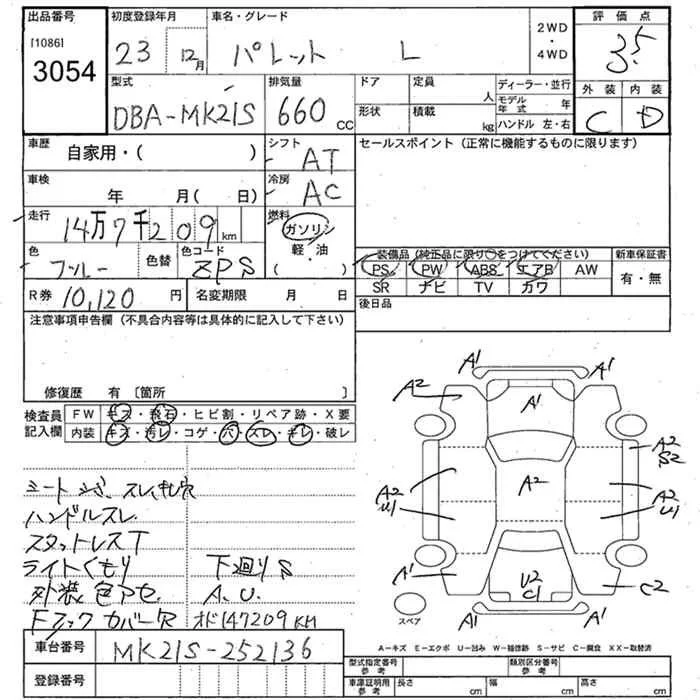 出品番号
[1086]
3054
初度登録年月
23 12月
車名・グレード
パレット L
2WD
・
4WD
評価点
3.5
外装 内装
C D
型式
DBA-MK21S
排気量
660 CC
ドア
定員
人
形状
積載
kg
ディーラー・並行
モデル年式 年
ハンドル 左・右
車歴
自家用・( )
シフト
AT
セールスポイント (正常に機能するものに限ります)
車検
年 月( 日)
冷房
AC
走行
14万7千209 km
燃料
ガソリン
軽・油
( )
色
ブルー
色替
色コード
ZPS
装備品(純正品に限り○をつけてください)
新車保証書
PS PW ABS エアB AW
SR ナビ TV カワ
有・無
R券 10,120 円
名変期限 月 日
後日品
注意事項申告欄 (不具合内容等は具体的に記入して下さい)
修復歴 有 〔箇所 〕
検査員
記入欄
FW キズ・飛石・ヒビ割・リペア跡・X要
内装 キズ・汚レ・コゲ・穴・スレ・キレ・破レ
シートシミ、スレ、キレ穴
ハンドルスレ
スタットレスT
ライトくもり
下廻りS
外装色アセ.
A.U.
Fフックカバー欠
オド147209KM
車台番号
MK21S-252136
登録番号
A1
A1
A2
A1
A2
A2
S2
A2
U1
A2
U1
A1
U2
C1
C2
A1
A1
スペア
A-キズ E-エクボ U-凹み W-補修跡 S-サビ C-腐食 XX-取替済
型式指定番号
参考
類別区分番号
参考
車庫証明用
参考
長さ cm
幅 cm
高さ cm